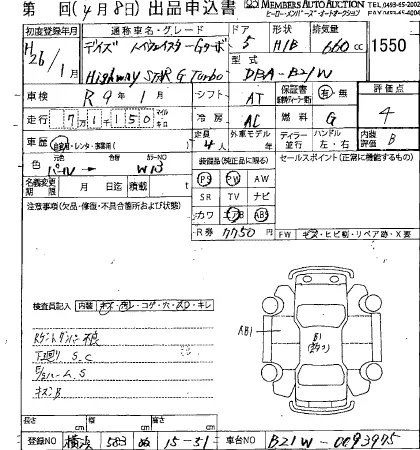 第 回(4月8日)出品申込書 MEMBERS AUTO AUCTION TEL.0493-45-2002
ヒーローメンバーズ・オートオークション FAX.0493-45-4004
初度登録年月 通称車名・グレード ドア 形状 排気量
H26/1月 デイズ ハイウェイスターGターボ 5 H/B 660cc 1550
Highway STAR G Turbo 型式 DBA-B21W
車検 R9年1月 シフト AT 保証書 有・無 評価点
走行 7万1千150 マイル キロ 冷房 AC 燃料 G 4
車歴 自家用・レンタ・事業用( ) 定員 4人 外車モデル 年 ディーラー 並行 ハンドル 左・右 内装 B 評価
色 元色 パール→ 色替 カラーNO W13 装備品(純正品に限る) セールスポイント(正常に機能するもの)
名義変更期限 月 日迄 積載 t PS PW AW
注意事項(欠品・修復・不具合箇所および状態) SR TV ナビ
カワ エアB ABS
R券 7750円 FW キズ・ヒビ割・リペア跡・X要
検査員記入 内装 キズ・汚レ・コゲ・穴・スレ・キレ
下回り S.C
キズB
AB1
B1
長さ cm 幅 cm 高さ cm
登録NO 横浜 583 ぬ 15-31 車台NO B21W-0093975